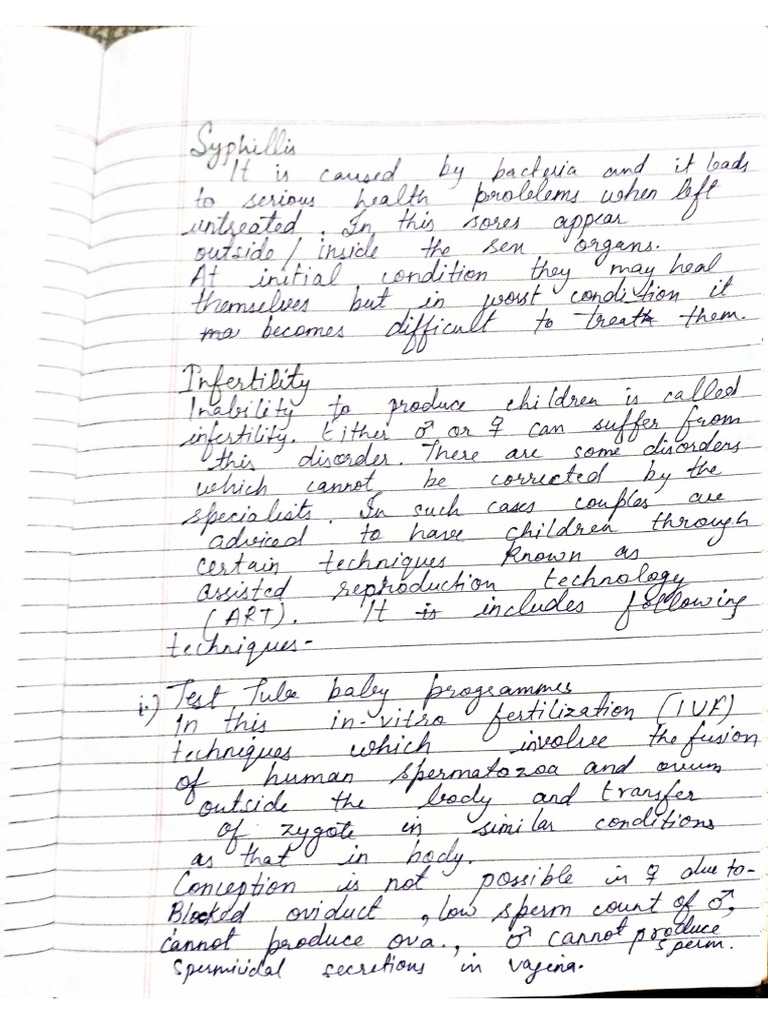 Syphillis
It is caused by bacteria and it leads
to serious health prolelems when left
untreated. In this sores appear
outside/inside the sex organs.
At initial condition they may heal
themselves but in worst condition it
ma becomes difficult to treat them.
Infertility
Inability to produce children is called
infertility. Either ♂ or ♀ can suffer from
this disorder. There are some disorders
which cannot be corrected by the
specialists. In such cases couples are
adviced to have children through
certain techniques known as
assisted reproduction technology
(ART). It is includes following
techniques-
i.) Test Tube baby programmes
In this in-vitro fertilization (IVF)
techneques which involve the fusion
of human spermatozoa and ovum
outside the body and transfer
of zygote in similar conditions
as that in body.
Conception is not possible in ♀ due to-
Blocked oviduct, low sperm count of ♂,
cannot produce ova., ♂ cannot produce
sperm.
spermividal secretions in vagina.